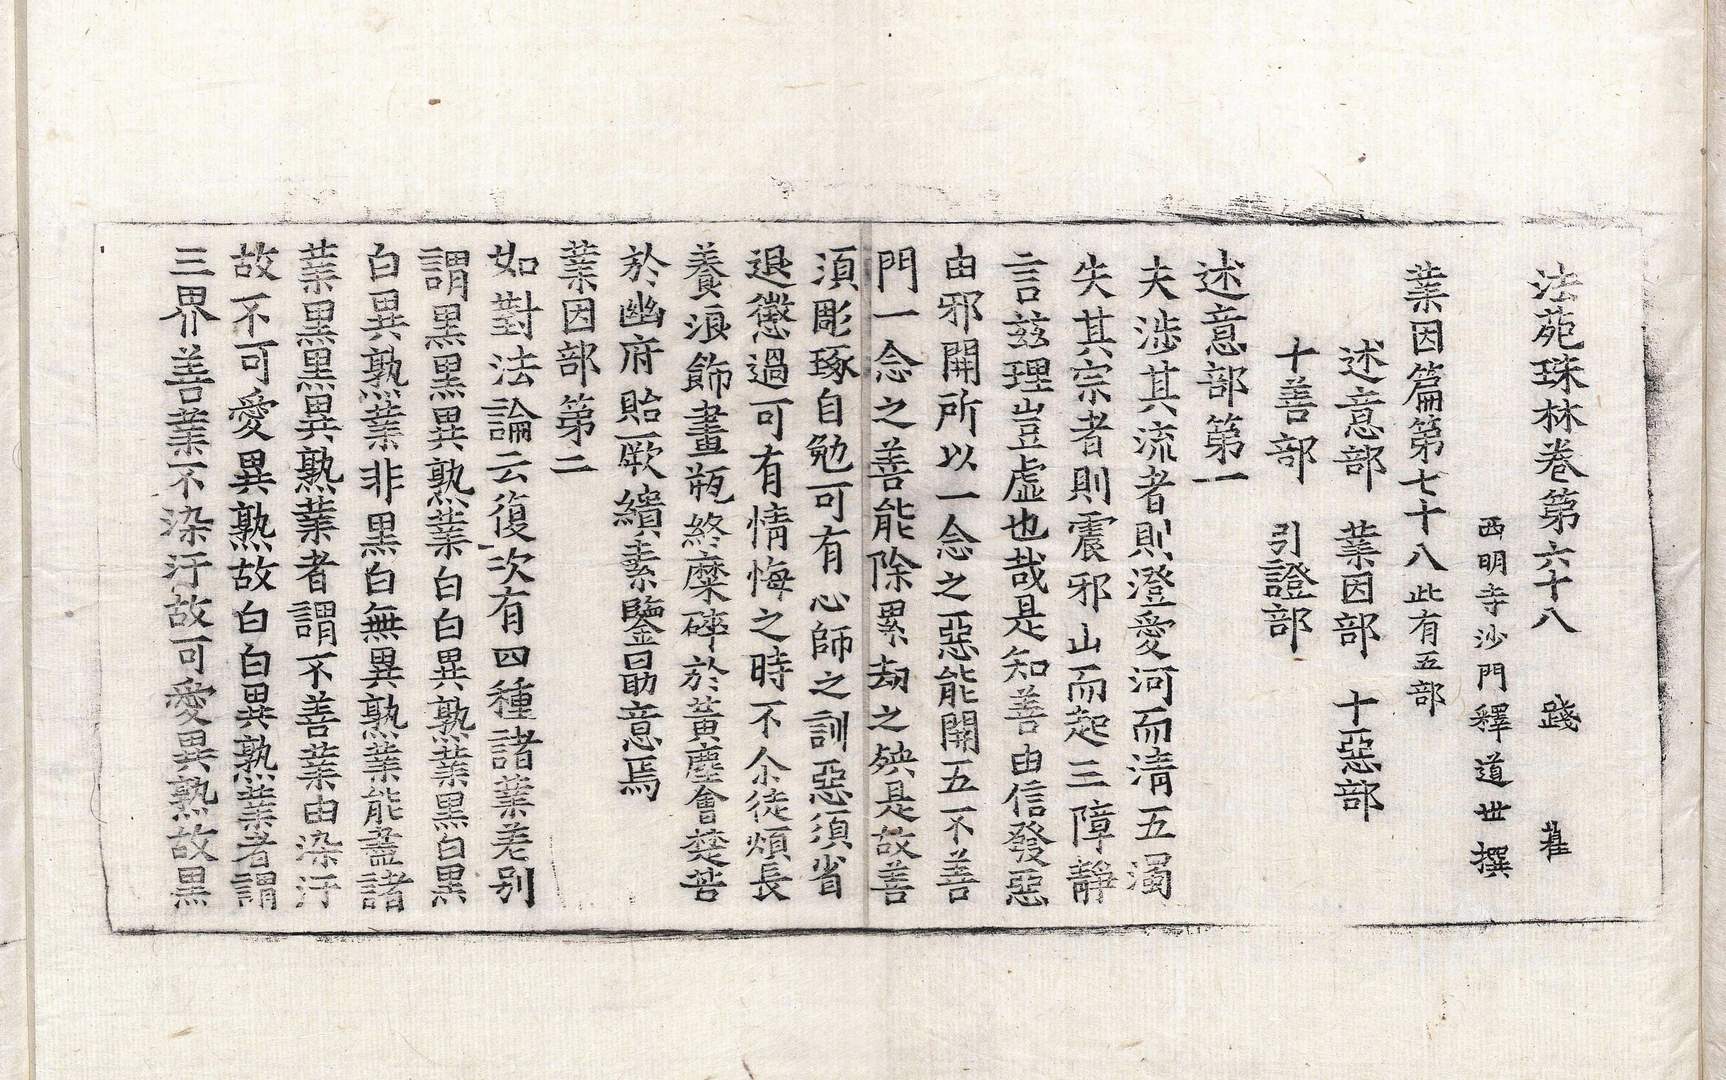 法苑珠林卷第六十八　踐　雈
西明寺沙門釋道世撰
業因篇第七十八此有五部
述意部　業因部　十惡部
十善部　引證部
述意部第一
夫涉其流者則澄愛河而清五濁
失其宗者則震邪山而起三障靜
言玆理豈虛也哉是知善由信發惡
由邪開所以一念之惡能開五不善
門一念之善能除累劫之殃是故善
須彫琢自勉可有心師之訓惡須省
退懲過可有情悔之時不尒徒煩長
養浪飾畫瓶終糜碎於黃塵會楚苦
於幽府貽厥繢素鑒勗意焉
業因部第二
如對法論云復次有四種諸業差別
謂黑黑異熟業白白異熟業黑白黑
白異熟業非黑白無異熟業能盡諸
業黑黑異熟業者謂不善業由染汙
故不可愛異熟故白白異熟業者謂
三界善業不染汙故可愛異熟故黑